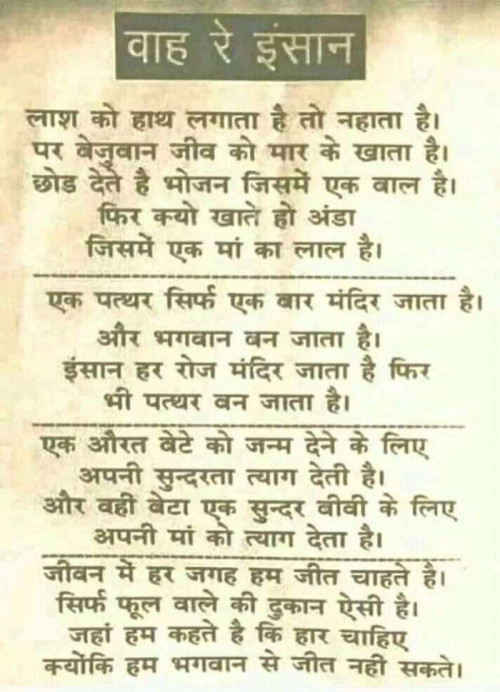 वाह रे इंसान
लाश को हाथ लगाता है तो नहाता है।
पर बेजुबान जीव को मार के खाता है।
छोड देते है भोजन जिसमें एक बाल है।
फिर क्यो खाते हो अंडा
जिसमें एक मां का लाल है।
एक पत्थर सिर्फ एक बार मंदिर जाता है।
और भगवान बन जाता है।
इंसान हर रोज मंदिर जाता है फिर
भी पत्थर बन जाता है।
एक औरत बेटे को जन्म देने के लिए
अपनी सुन्दरता त्याग देती है।
और वही बेटा एक सुन्दर बीवी के लिए
अपनी मां को त्याग देता है।
जीवन में हर जगह हम जीत चाहते है।
सिर्फ फूल वाले की दुकान ऐसी है।
जहां हम कहते है कि हार चाहिए
क्योंकि हम भगवान से जीत नही सकते।